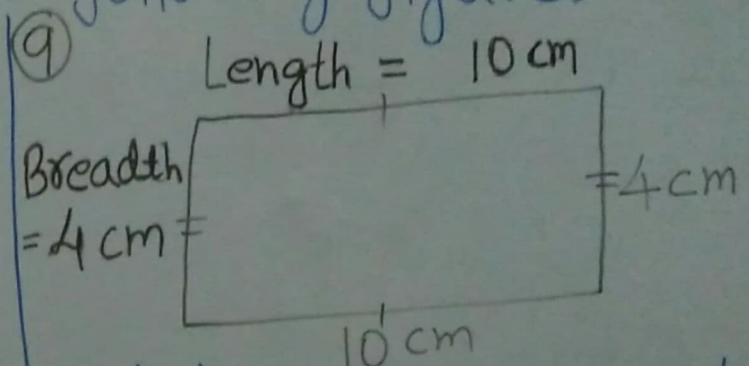 9
Length = 10 cm
Breadth
= 4 cm
4 cm
10 cm